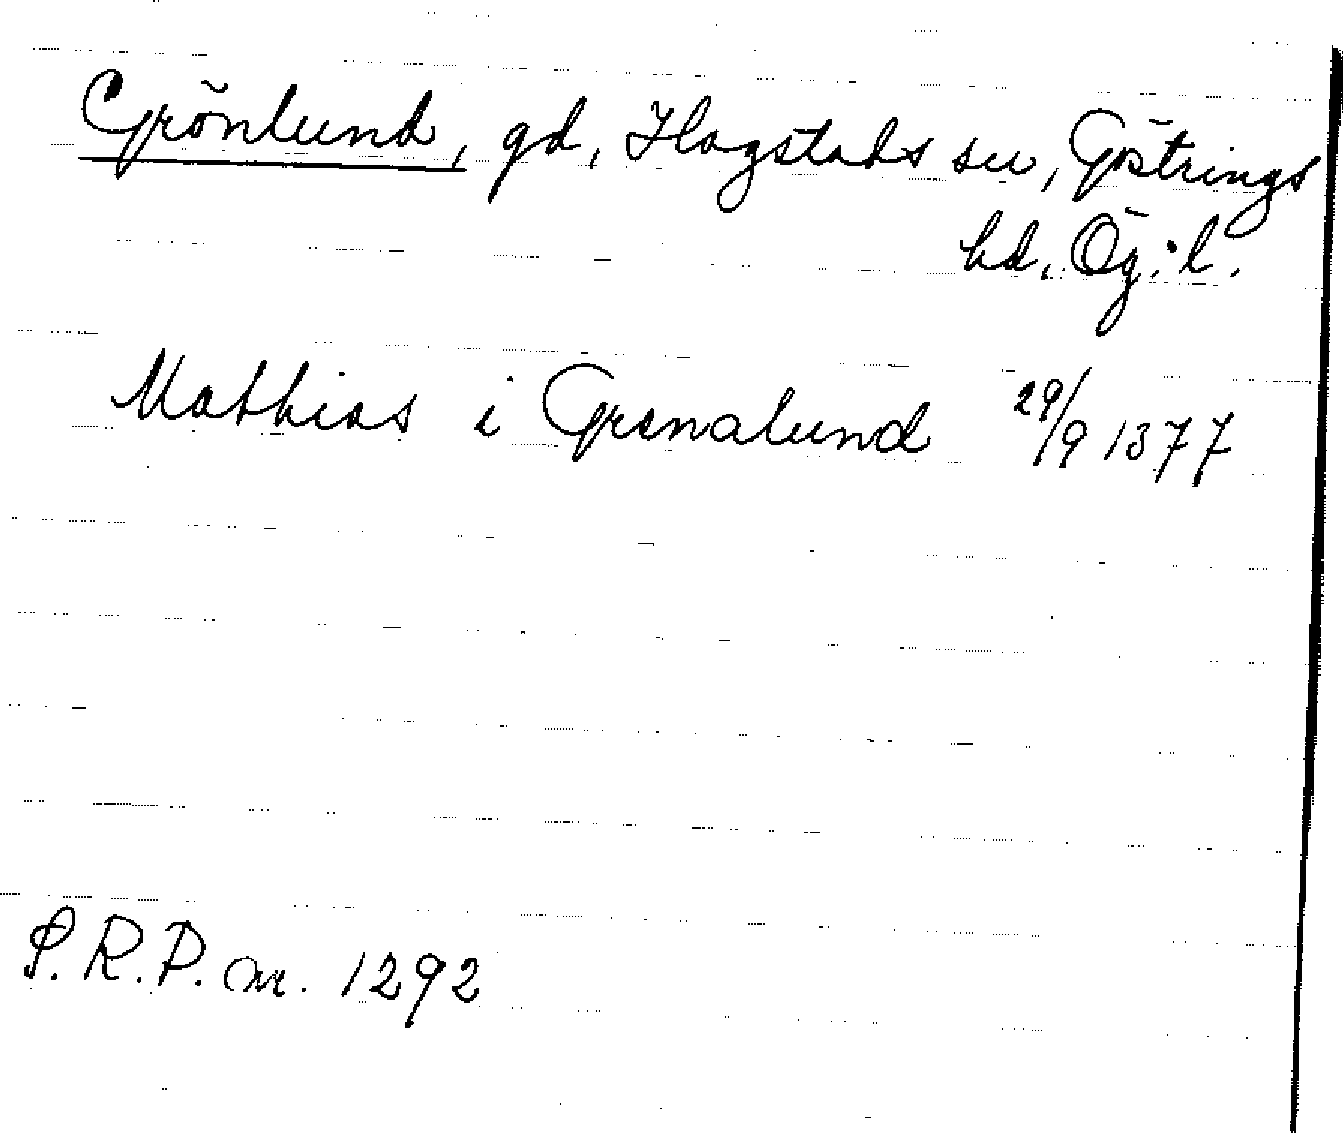 Grönlund, gd, Hogstads sn, Göstrings
hd, Ög. l.
Mathias i Grønalund 29/9 1377
S.R.P. nr. 1292